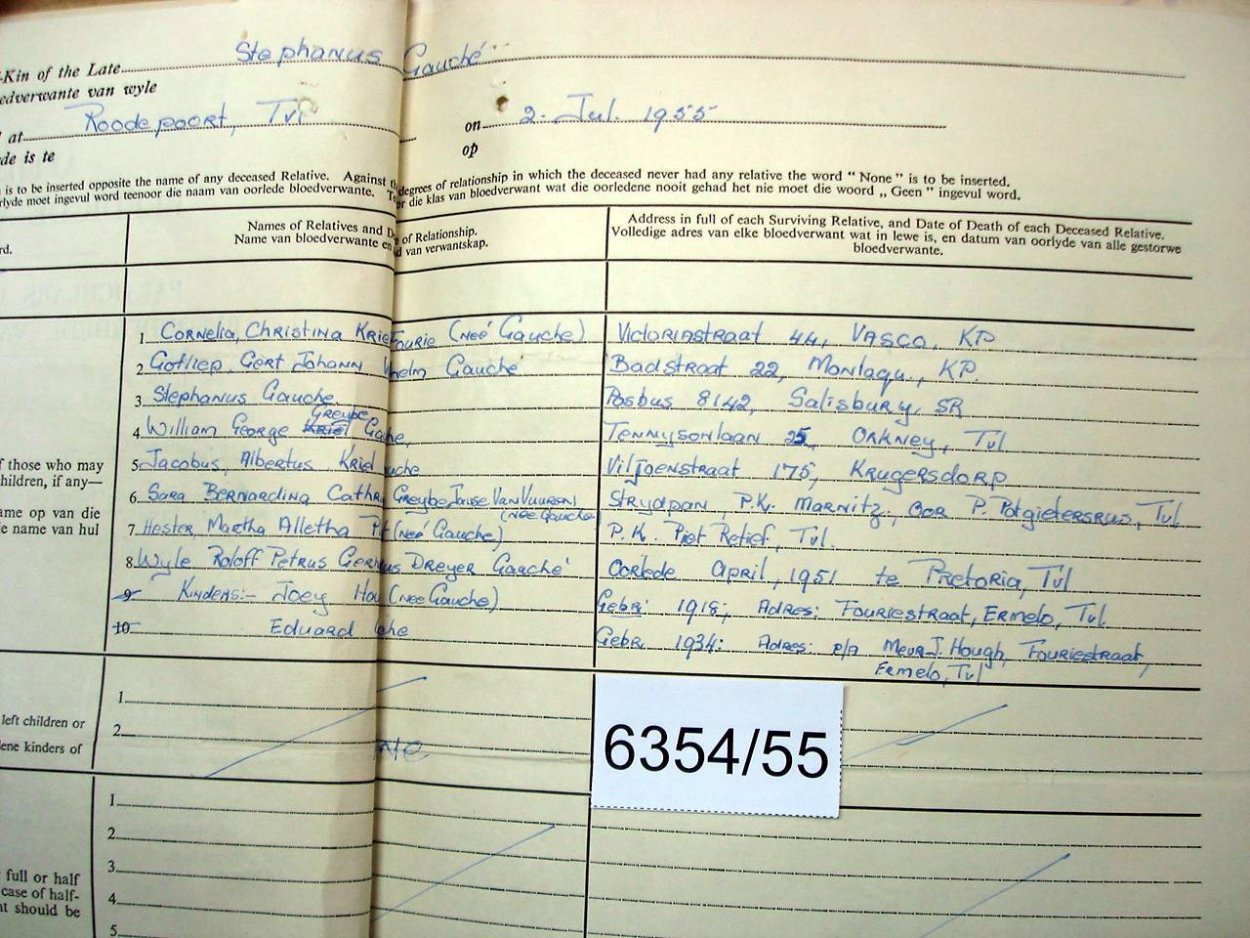 -Kin of the Late Stephanus Gauché
edverwante van wyle
at Roodepoort, Tvl on 2. Jul. 1955
de is te op
is to be inserted opposite the name of any deceased Relative. Against degrees of relationship in which the deceased never had any relative the word " None " is to be inserted.
rlyde moet ingevul word teenoor die naam van oorlede bloedverwante. or die klas van bloedverwant wat die oorledene nooit gehad het nie moet die woord „ Geen " ingevul word.
rd. Names of Relatives and D of Relationship. Address in full of each Surviving Relative, and Date of Death of each Deceased Relative.
Name van bloedverwante en d van verwantskap. Volledige adres van elke bloedverwant wat in lewe is, en datum van oorlyde van alle gestorwe
bloedverwante.
1 Cornelia, Christina Kriel Fourie (neé Gauche) Victoriastraat 44, VASCO, KP
2 Gotliep Gert Johann helm Gauche Badstraat 22, Montagu, KP.
3 Stephanus Gauche Posbus 8142, Salisbury, SR
Greybe
4 William George Kriel Gauche, Tennysonlaan 25, Orkney, Tvl
5 Jacobus, Albertus Kriel uche Viljoenstraat 175, Krugersdorp
f those who may
hildren, if any—
6 Sara Bernardina Cathr Greybe Janse Van Vuuren Strydpan, P.K. Marnitz, oor P. Potgietersrus, Tvl
(neé Gauche
ame op van die
e name van hul
7 Hester Martha Alletha (neé Gauche) P.K. Piet Retief, Tvl.
8 Wyle Roloff Petrus Ger us Dreyer Gauché Oorlede April, 1951 te Pretoria, Tvl
9 Kinders:- Joey Hou (neé Gauche) Gebr: 1918; Adres: Fouriestraat, Ermelo, Tvl.
10 Eduard che Gebr. 1934: Adres: p/a Mevr J. Hough, Fouriestraat,
Ermelo, Tvl
1
left children or
2
ene kinders of
6354/55
1
2
3
full or half
case of half-
4
at should be
5